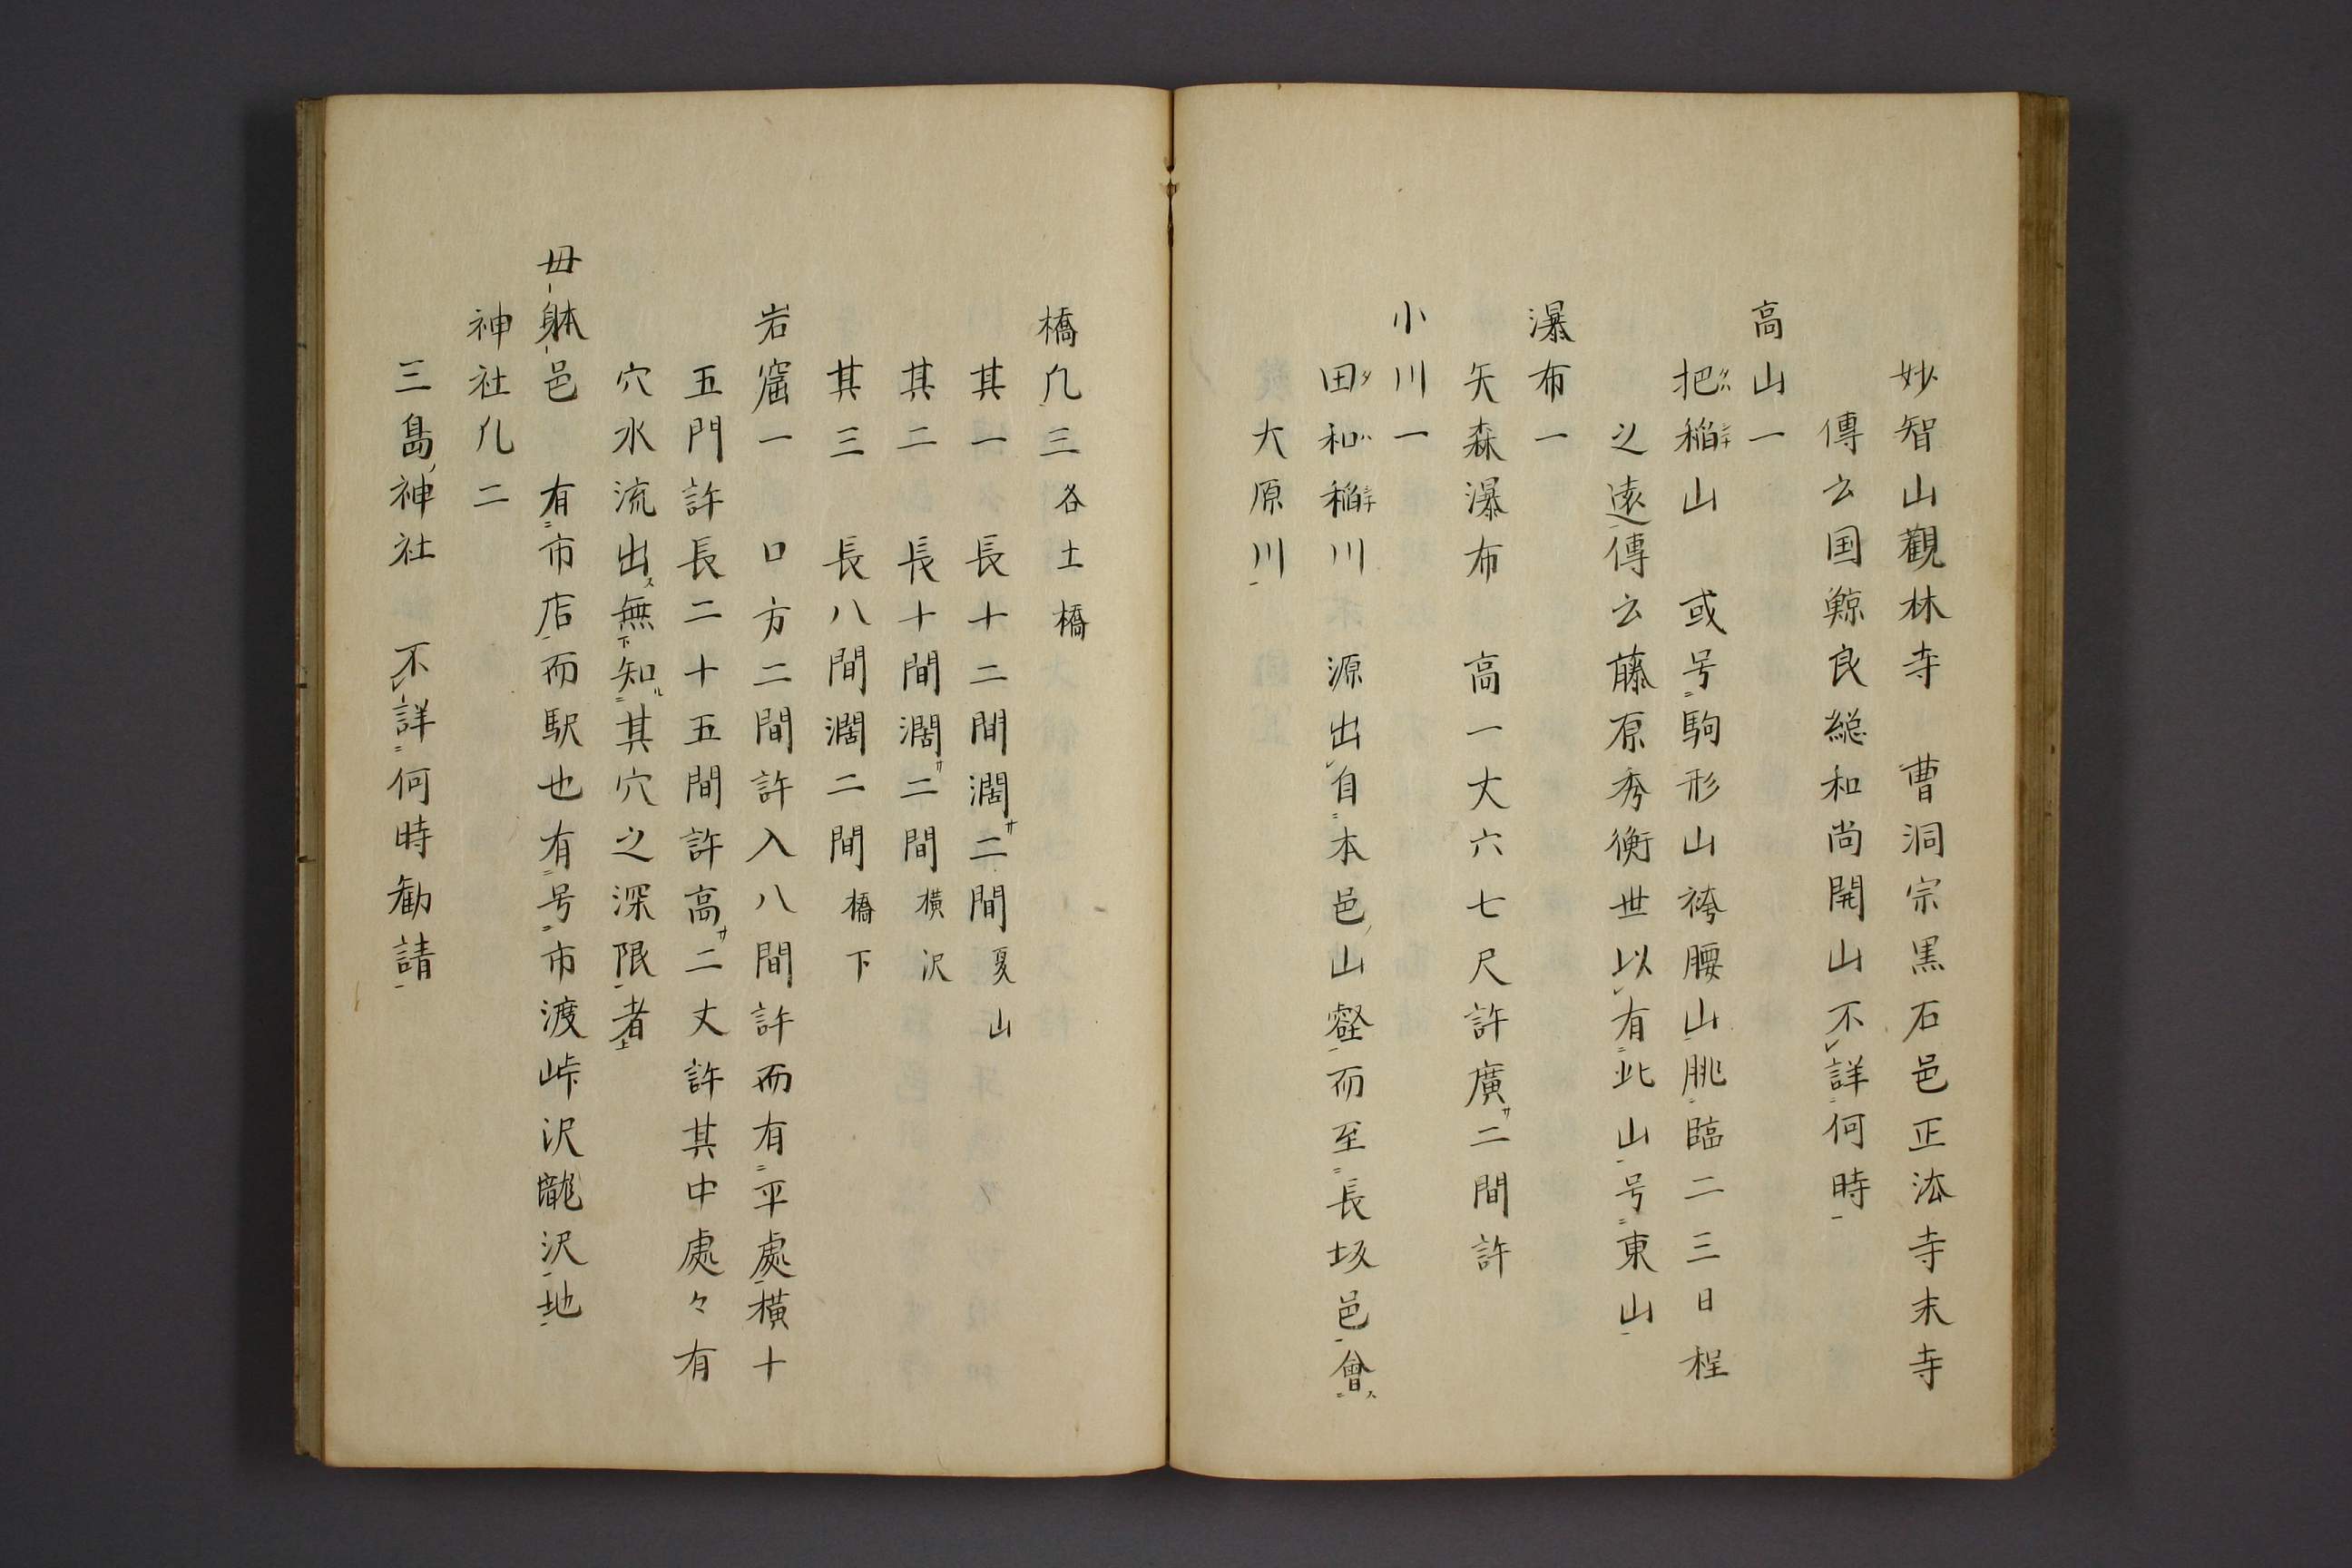 妙智山觀林寺　曹洞宗黒石邑正法寺末寺
傳云国鯨良総和尚開山不詳何時
高山一
把稲山　或号駒形山袴腰山眺臨二三日程
之遠傳云藤原秀衡世以有此山号東山
瀑布一
矢森瀑布　高一丈六七尺許廣サ二間許
小川一
田和稲川　源出自本邑山壑而至長坂邑會ス
大原川
橋凡三各土橋
其一　長十二間濶サ二間夏山
其二　長十間濶サ二間横沢
其三　長八間濶二間橋下
岩窟一　口方二間許入八間許而有平處横十
五門許長二十五間許高サ二丈許其中處々有
穴水流出ス無知ル其穴之深限者
毋躰邑　有市店而駅也有号市渡峠沢朧沢地
神社凡二
三島神社　不詳何時勧請